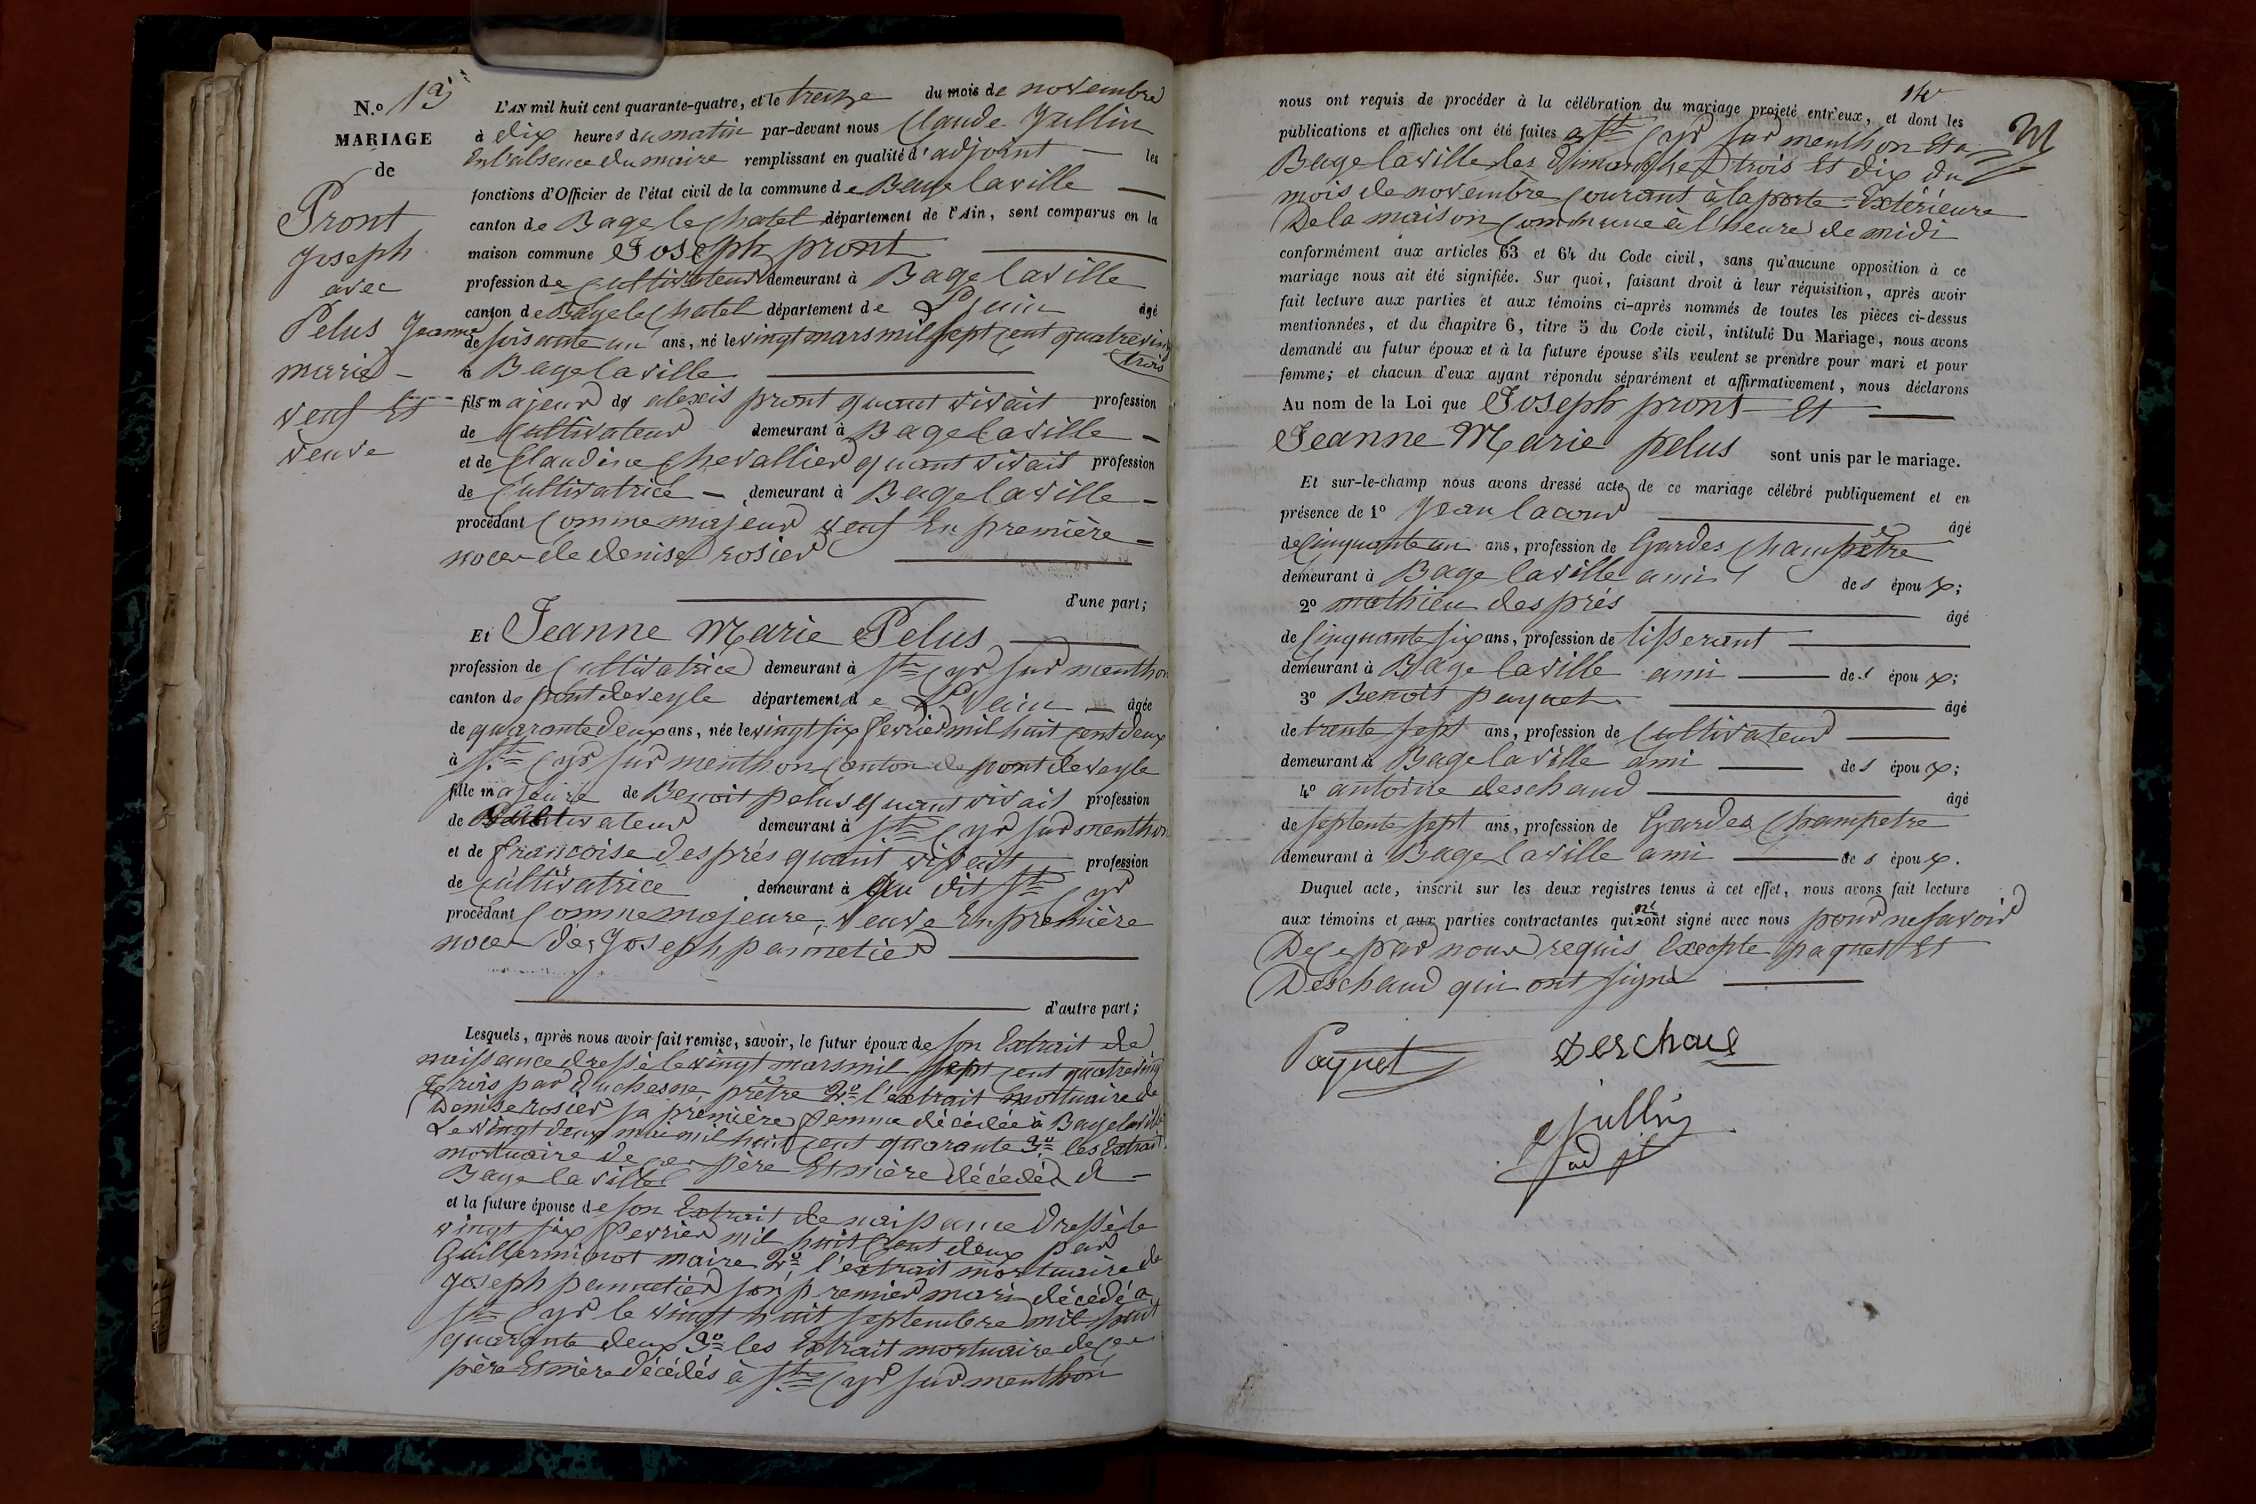 N.o 13
MARIAGE
de
Pront
Joseph
avec
Pelus Jeanne
marie -
veuf Et
veuve
L'AN mil huit cent quarante-quatre, et le treize du mois de novembre
à dix heures du matin par-devant nous Claude Jullin
En l'absence du maire remplissant en qualité d'adjoint les
fonctions d'Officier de l'état civil de la commune de Bage laville
canton de Bage le Chatel département de l'Ain, sont comparus en la
maison commune Joseph pront
profession de cultivateur demeurant à Bage laville
canton de Bage le Chatel département de L'ain âgé
de soisante un ans, né le vingt mars mil sept cent quatrevingt
trois
à Bage laville
fils majeur de alexis pront quant vivait profession
de Cultivateur demeurant à Bage laville -
et de Claudine Chevallier quant vivait profession
de Cultivatrice - demeurant à Bage laville -
procédant Comme majeur veuf En première -
noce de denise rosier
d'une part;
Et Jeanne Marie Pelus
profession de Cultivatrice demeurant à St Cyr sur menthon
canton de pont deveyle département de L'ain - âgée
de quarante deux ans, née le vingt six fevrier mil huit cent deux
à St Cyr sur menthon canton de pont de veyle
fille majeure de Benoit pelus quant vivait profession
de Cultivateur demeurant à St Cyr sur menthon
et de francoise després quant vivait profession
de cultivatrice demeurant à au dit St Cyr
procédant Comme majeure, veuve En première
noce de Joseph pannetier
d'autre part;
Lesquels, après nous avoir fait remise, savoir, le futur époux de son Extrait de
naissance dressé le vingt mars mil sept cent quatreving
trois par duchesne prêtre 2o l'extrait mortuaire de
Denise rosier sa première femme décédée à Bage laville
Le vingt deux mai mil huit cent quarante 3o les Extrait
mortuaire de ces père Et mère décédés à -
Bage la ville
et la future épouse de son Extrait de naissance dressé le
vingt six fevrier mil huit cent deux par
Guillerminot maire 2o l'extrait mortuaire de
Joseph pannetier son premier mari décédé à
St Cyr le vingt huit septembre mil huit
quarante deux 3o les Extrait mortuaire de ces
père Et mère décédés à St Cyr sur menthon
14
nous ont requis de procéder à la célébration du mariage projeté entr'eux, et dont les
publications et affiches ont été faites a St Cyr sur menthon Et a
Bage laville les dimanches trois Et dix du
mois de novembre Courant à la porte Extérieure
De la maison Commune à l'heure de midi
conformément aux articles 63 et 64 du Code civil, sans qu'aucune opposition à ce
mariage nous ait été signifiée. Sur quoi, faisant droit à leur réquisition, après avoir
fait lecture aux parties et aux témoins ci-après nommés de toutes les pièces ci-dessus
mentionnées, et du chapitre 6, titre 5 du Code civil, intitulé Du Mariage, nous avons
demandé au futur époux et à la future épouse s'ils veulent se prendre pour mari et pour
femme; et chacun d'eux ayant répondu séparément et affirmativement, nous déclarons
Au nom de la Loi que Joseph pront Et
Jeanne Marie pelus sont unis par le mariage.
Et sur-le-champ nous avons dressé acte de ce mariage célébré publiquement et en
présence de 1o Jean lacour âgé
de Cinquante un ans, profession de Gardes Champêtre
demeurant à Bage laville ami des époux;
2o mathieu després âgé
de Cinquante six ans, profession de tisserant
demeurant à Bage laville ami des époux;
3o Benoit paquet âgé
de trente sept ans, profession de Cultivateur
demeurant à Bage laville ami des époux;
4o antoine deschaud âgé
de septente sept ans, profession de Gardes Champetre
demeurant à Bage laville ami des époux.
Duquel acte, inscrit sur les deux registres tenus à cet effet, nous avons fait lecture
aux témoins et aux parties contractantes qui n'ont signé avec nous pour ne savoir
De ce par nous requis Excepte paquet Et
Deschaud qui ont signé
Paquet Deschaud
Jullin
adjt